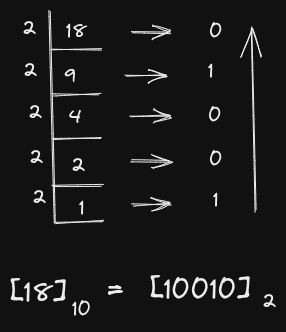 2 18 → 0
2 9 → 1
2 4 → 0
2 2 → 0
2 1 → 1
[18]₁₀ = [10010]₂